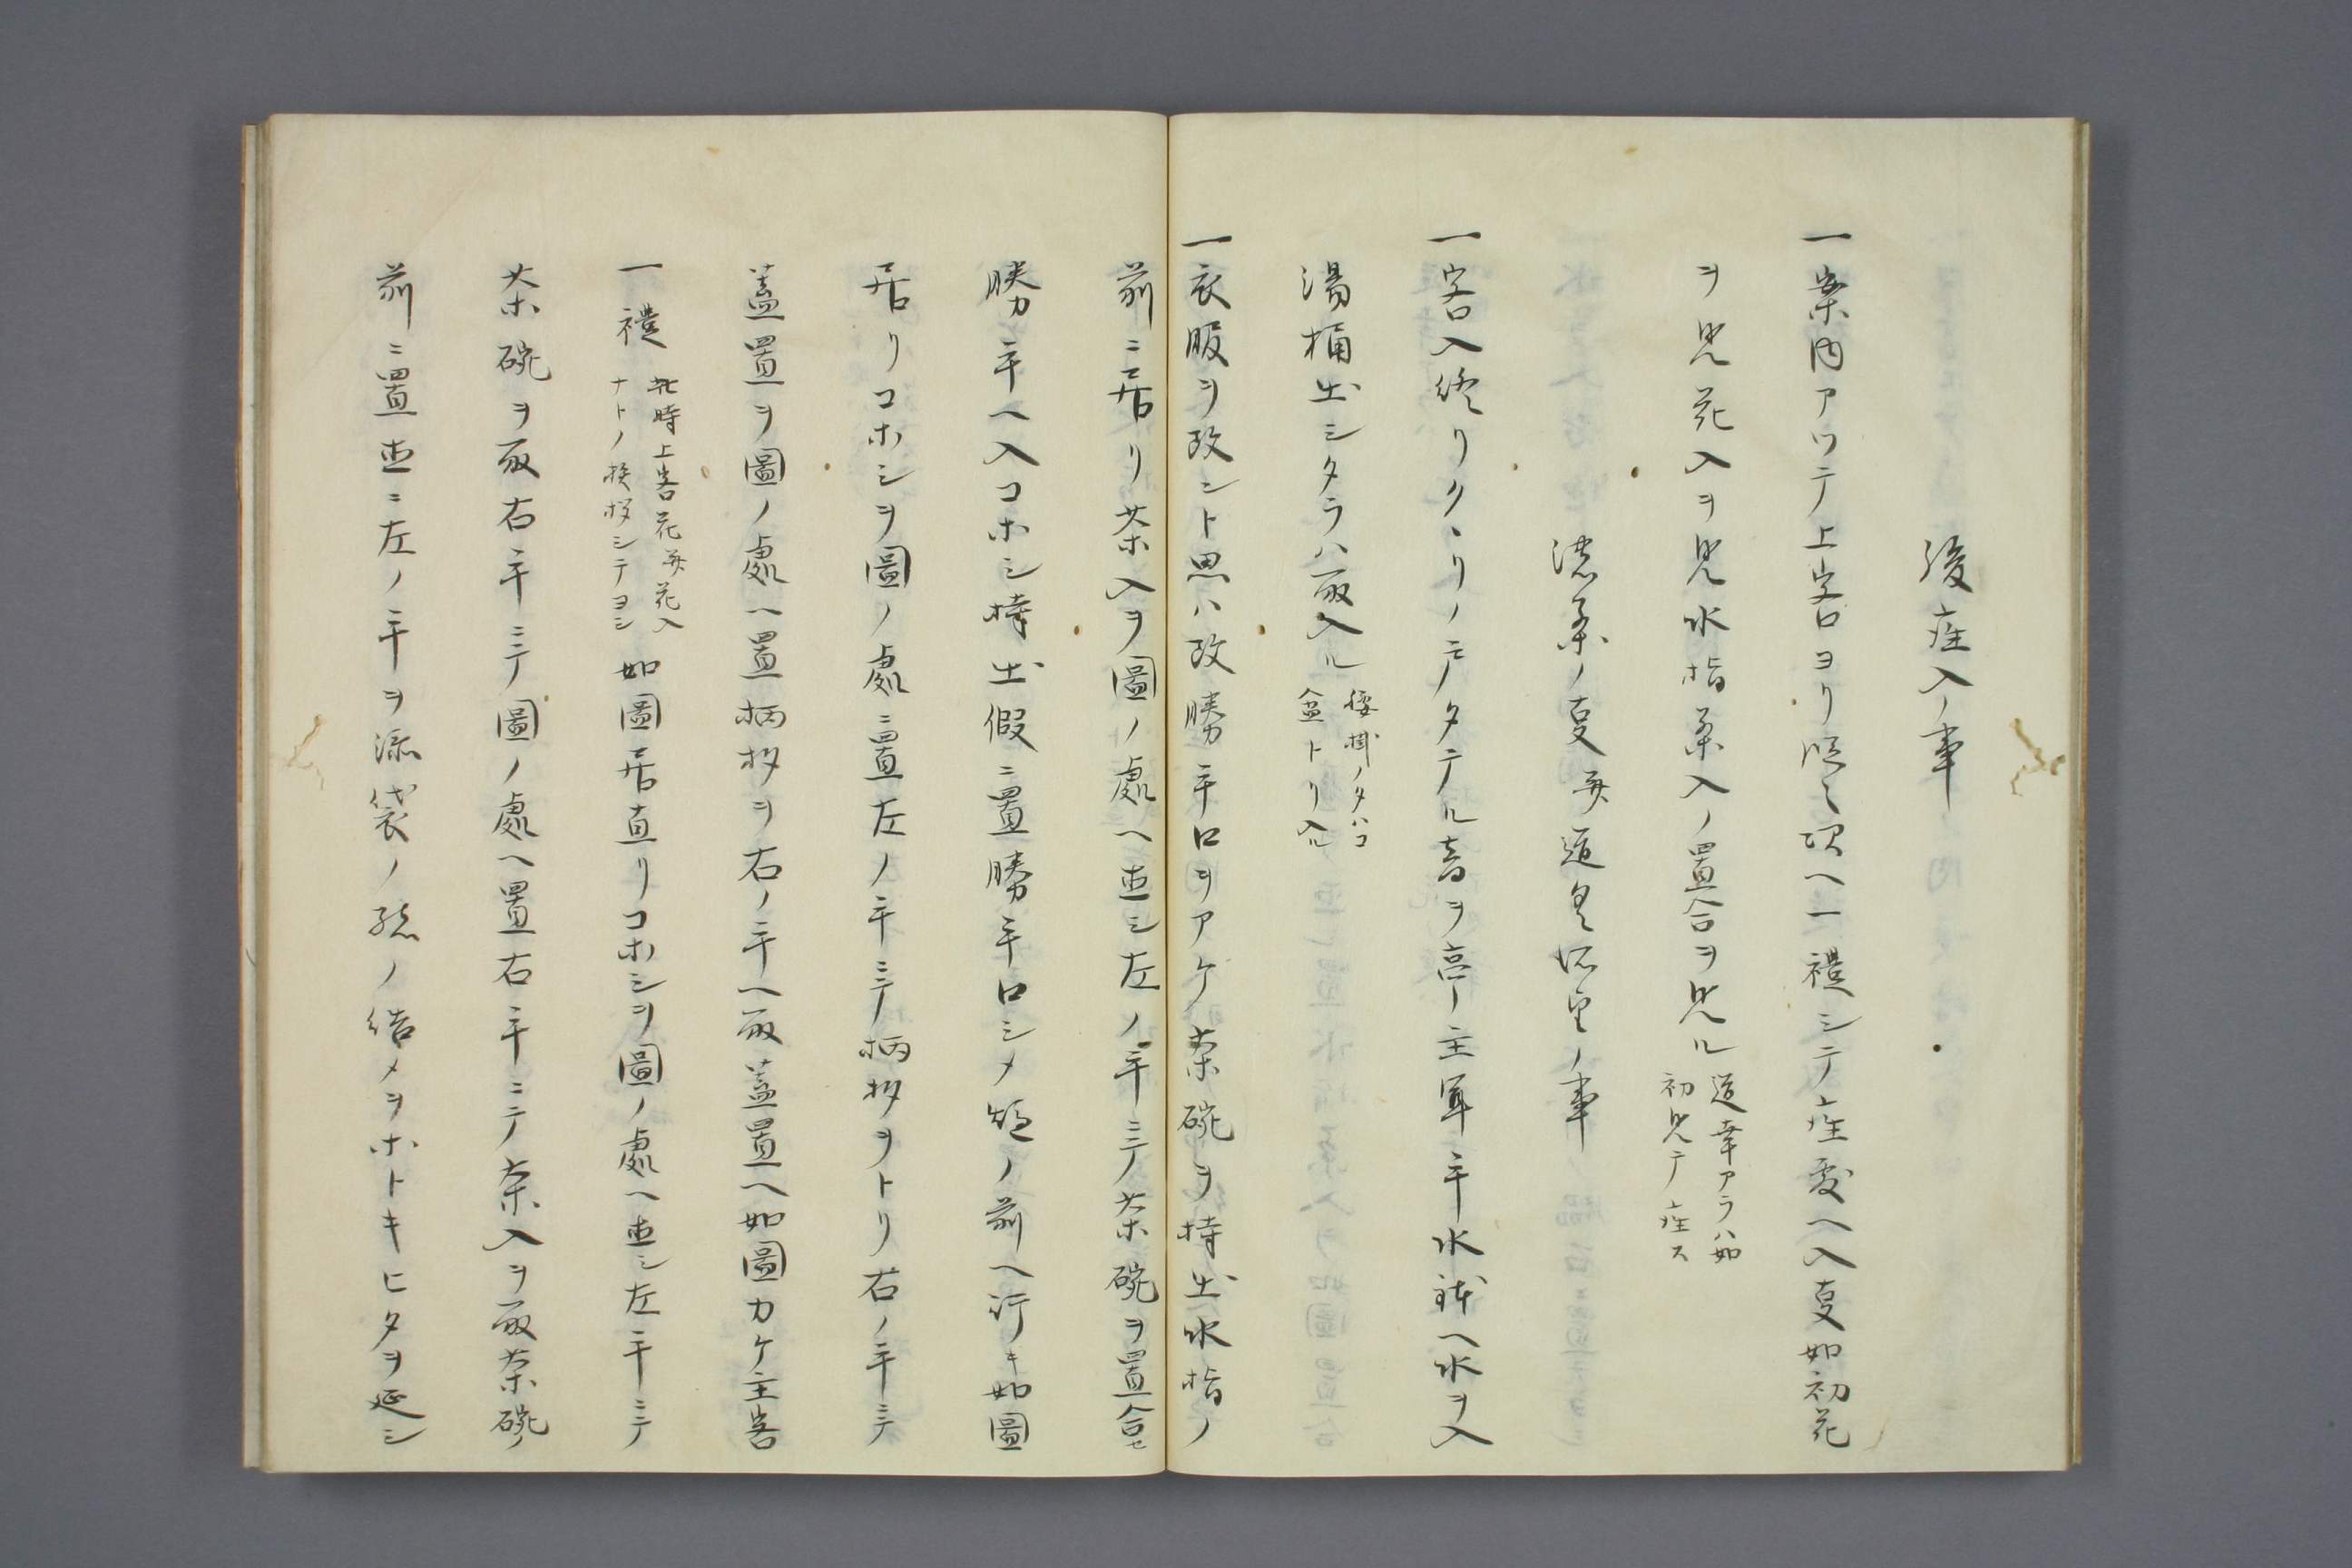 後座入ノ事
一案内アツテ上客ヨリ段々次ヘ一禮シテ座敷ヘ入夏如初花
ヲ見花入ヲ見水指茶入ノ置合ヲ見ル
道幸アラハ如
初見テ座ス
濃茶ノ夏并道具所望ノ事
一客入終リクヽリノ戸タテル音ヲ亭主軍手水鉢ヘ水ヲ入
湯桶出シタラハ取入ル
腰掛ノタハコ
盆トリ入ル
一衣服ヲ改ント思ハ改勝手口ヲアケ茶碗ヲ持出水指ノ
前ニ居リ茶入ヲ圖ノ處ヘ直シ左ノ手ニテ茶碗ヲ置合セ
勝手ヘ入コホシ持出假ニ置勝手口シメ炉ノ前ヘ行キ如圖
居リコホシヲ圖ノ處ニ置左ノ手ニテ柄杓ヲトリ右ノ手ニテ
蓋置ヲ圖ノ處ヘ置柄杓ヲ右ノ手ヘ取蓋置ヘ如圖カケ主客
一禮
此時上客花并花入
ナトノ挨拶シテヨシ
如圖居直リコホシヲ圖ノ處ヘ直シ左手ニテ
茶碗ヲ取右手ニテ圖ノ處ヘ置右手ニテ茶入ヲ取茶碗ノ
前ニ置直ニ左ノ手ヲ添袋ノ緒ノ結メヲホトキヒタヲ延シ